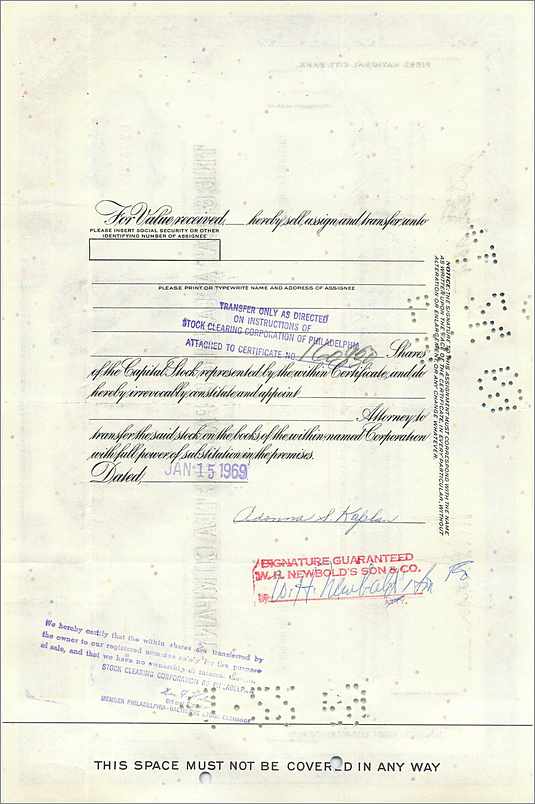 For Value received, hereby sell, assign and transfer unto
PLEASE INSERT SOCIAL SECURITY OR OTHER
IDENTIFYING NUMBER OF ASSIGNEE
PLEASE PRINT OR TYPEWRITE NAME AND ADDRESS OF ASSIGNEE
TRANSFER ONLY AS DIRECTED
ON INSTRUCTIONS OF
STOCK CLEARING CORPORATION OF PHILADELPHIA
ATTACHED TO CERTIFICATE NO.
Shares
of the Capital Stock represented by the within Certificate, and do
hereby irrevocably constitute and appoint
Attorney to
transfer the said stock on the books of the within named Corporation
with full power of substitution in the premises.
Dated, JAN 15 1969
NOTICE: THE SIGNATURE TO THIS ASSIGNMENT MUST CORRESPOND WITH THE NAME
AS WRITTEN UPON THE FACE OF THE CERTIFICATE IN EVERY PARTICULAR, WITHOUT
ALTERATION OR ENLARGEMENT OR ANY CHANGE WHATEVER.
S. Kaplan
SIGNATURE GUARANTEED
W. H. NEWBOLD'S SON & CO.
W. H. Newbold's Son
We hereby certify that the within shares are transferred by
the owner to our registered nominee solely for the purpose
of sale, and that we have no ownership or interest therein.
STOCK CLEARING CORPORATION OF PHILADELPHIA
MEMBER PHILADELPHIA-BALTIMORE STOCK EXCHANGE
THIS SPACE MUST NOT BE COVERED IN ANY WAY